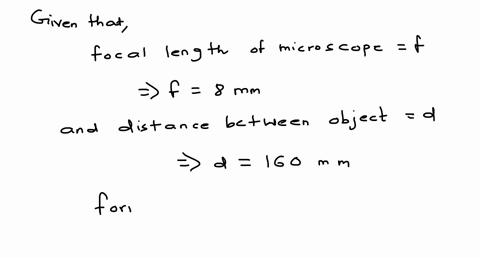 Given that,
focal length of microscope = f
=> f = 8 mm
and distance between object = d
=> d = 160 mm